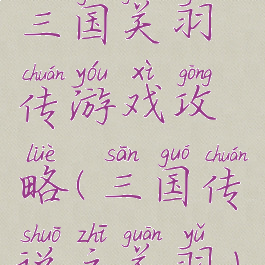 三国关羽
chuán yóu xì gōng
传游戏攻
lüè sān guó chuán
略(三国传
shuō zhī guān yǔ
说之关羽)